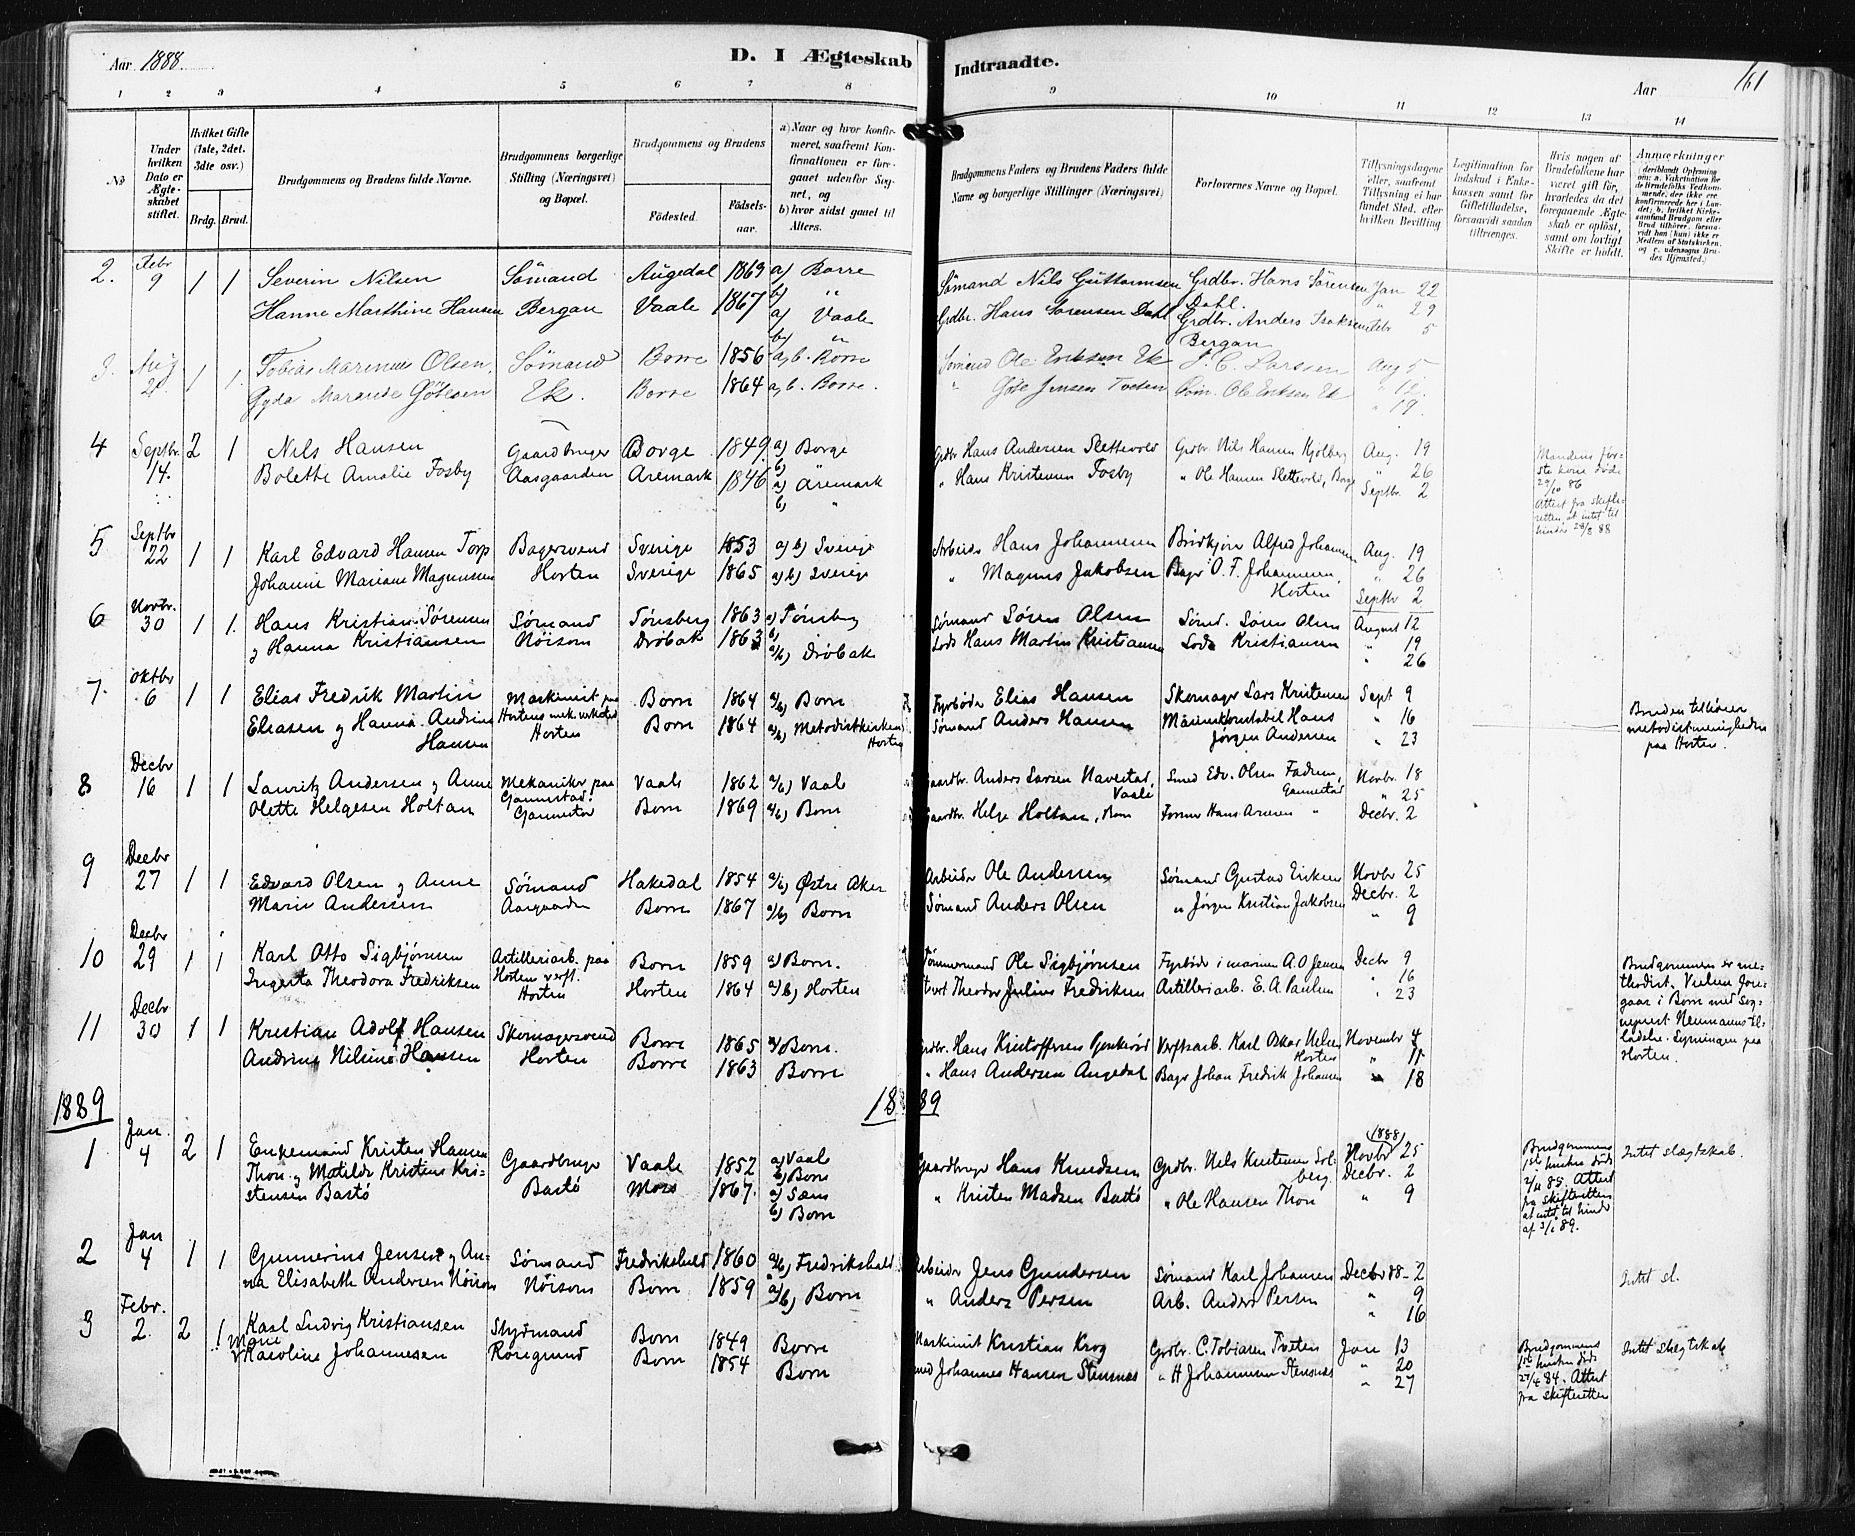 Aar 1888.
D. I Ægteskab Indtraadte.
Aar
161
1 2 3 4 5 6 7 8 9 10 11 12 13 14
No
Under hvilken Dato er Ægteskabet stiftet.
Hvilket Gifte (1ste, 2det, 3dte osv.)
Brdg. Brud.
Brudgommens og Brudens fulde Navne.
Brudgommens borgerlige Stilling (Næringsvei) og Bopæl.
Brudgommens og Brudens
Fødested. Fødselsaar.
a) Naar og hvor konfirmeret, saafremt Konfirmationen er foregaaet udenfor Sognet, og
b) hvor sidst gaaet til Alters.
Brudgommens Faders og Brudens Faders fulde Navne og borgerlige Stillinger (Næringsvei)
Forlovernes Navne og Bopæl.
Tillysningsdagene eller, saafremt Tillysning ei har fundet Sted, efter hvilken Bevilling
Legitimation for Indskud i Enkekassen samt for Giftetilladelse, forsaavidt saadan tiltrænges.
Hvis nogen af Brudefolkene har været gift før, hvorledes da det foregaaende Ægteskab er opløst, samt om lovligt Skifte er holdt.
Anmærkninger
2. Febr 9 1 1 Severin Nilsen Sömand Augedal 1863 a) Borre Sömand Nils Guttormsen Grdbr. Hans Sörensen Jan 22
b) " Dahl. " 29
Hanne Marthine Hansen Bergan Vaale 1867 a) Vaale Grdbr. Hans Sorensen Dahl Grdbr. Anders Isaksen Febr 5
b) " Bergan
3. Aug 21 1 1. Tobias Marinus Olsen, Sömand Borre 1856 a, b. Borre Sömand Ole Eriksen Ek J. C. Larssen Aug 5.
" 12.
Gyda Marande Götesen Ek. Borre 1864 a, b. Borre. " Göte Jensen Tveten Söm. Ole Eriksen Ek " 19.
4 Septbr. 14. 2 1 Nils Hansen Gaardbruger Borge 1849. a) Borge Grdbr Hans Andersen Slettevold Grdbr Nils Hansen Hjolberg Aug. 19
Bolette Amalie Fosby Aasgaarden Aremark 1846 a) Aremark " Hans Kristensen Fosby " Ole Hansen Slettevold, Borge " 26
b) " Septbr. 2
Mandens første kone døde 29/10 86
Attest fra skifteretten at intet til hinder 28/8 88
5 Septbr 22 1 1 Karl Edvard Hansen Torp Bagersvend Sverige 1853 a) b) Sverige Arbeider Hans Johannesen Aug. 19
Johanne Mariane Magnussen Horten Sverige 1865 a) b) Sverige " Magnus Jakobsen Bager O. F. Johannesen, " 26
Horten Septbr 2
6 Novbr. 30 1 1. Hans Kristian Sørensen Sømand Tønsberg 1863 a) Tønsberg Sømand Søren Olsen Sømd. Søren Olsen August 12
og Hanna Kristiansen Nöisom Dröbak 1863 a/b) Dröbak Lods Hans Martin Kristiansen Lods Kristiansen " 19
" 26
7. Oktbr 6 1 1 Elias Fredrik Martin Maskinist paa Borre 1864 a/b) Borre Fyrbøder Elias Hansen Skomager Lars Kristensen Sept 9
Eliasen og Hanna Andrine Hortens mek. verksted Borre 1864 a/b) Metodistkirken Sømand Anders Hansen Marinekonstabel Hans " 16
Hansen Horten Horten Jørgen Andersen " 23
Bruden tilhører metodistmenigheden paa Horten.
8 Decbr 16 1 1 Lauritz Andersen og Anne Mekaniker paa Vaale 1862 a/b) Vaale Gaardbr. Anders Larsen Navestad, Smed Edv. Olsen Fadum, Novbr. 18
Vaale Gannestad " 25
Olette Helgesen Holtan Gannestad Borre 1869 a/b) Borre Gaardbr. Helge Holtan, Borre Former Hans Arnesen " Decbr. 2
9 Decbr 27 1 1 Edvard Olsen og Anne Sømand Hakedal 1854 a/b) Østre Aker Arbeider Ole Andersen Sømand Gustav Eriksen Novbr 25
Marie Andersen Aasgaarden Borre 1867 a/b) Borre Sømand Anders Olsen " Jørgen Kristian Jakobsen Decbr. 2
" 9
10 Decbr 29 1 1 Karl Otto Sigbjørnsen Artilleriarb. paa Borre 1859 a) Borre. Tømmermand Ole Sigbjørnsen Fyrbøder i marinen A. O Jensen Decbr 9
Ingerta Theodora Fredriksen Horten verft. Horten Horten 1864 a/b) Horten Theodor Julius Fredriksen Artilleriarb. E. A. Paulsen " 16
" 23
Brudgommen er methodist. Vielsen foregaar i Borre med Sognepræst Neumanns tilladelse. Lysningen paa Horten.
11 Decbr 30 1 1 Kristian Adolf Hansen Skomagersvend Borre 1865 a) Borre. Grdbr. Hans Kristoffersen Verftsarb. Karl Oskar Nilsen November 4
Horten " 11
Andrine Nilsine Hansen Horten Borre 1863 Borre " Hans Andersen Augedal Bager Johan Fredrik Johansen " 18
1889 1889
1 Jan. 4 2 1 Enkemand Kristen Hansen Gaardbruger Vaale 1852 a) Vaale Gaardbruger Hans Knudsen Grdbr. Nels Kristensen Solberg. (1888) Novbr 25
Thon og Matilde Kristine Kristensen Bastö Bastö Moss 1867. b) Borre " Kristen Madsen Bastö " Ole Hansen Thon Decbr. 2
a) Sæm " 9
b) Borre
Brudgommens 1st hustru døde 2/11 85. Attest fra skifteretten at intet til hinder af 3/1 89.
Intet slægtskab.
2 Jan 4 1 1 Gunnerius Jensen og Anna Elisabeth Andersen Nöisom Sømand Nöisom Fredrikshald 1860 a/b) Fredrikshald Arbeider Jens Gundersen Sømand Karl Johansen Decbr 88 - 2
Borre 1859 a/b) Borre " Anders Persen Arb. Anders Persen " 9
" 16
Intet sl.
3 Febr. 2. 2 1 Karl Ludvig Kristiansen Styrmand Borre 1849 Borre Maskinist Kristian Krog Grdbr. C. Tobiasen Tveten Jan 13
Marie
Karoline Johannesen Røregrund Borre 1854 Borre Johannes Hansen Stensnæs " H Johannesen Stensnæs " 20
" 27
Brudgommens 1st hustru døde 27/4 84. Attest fra skifteretten
Intet slægtskab